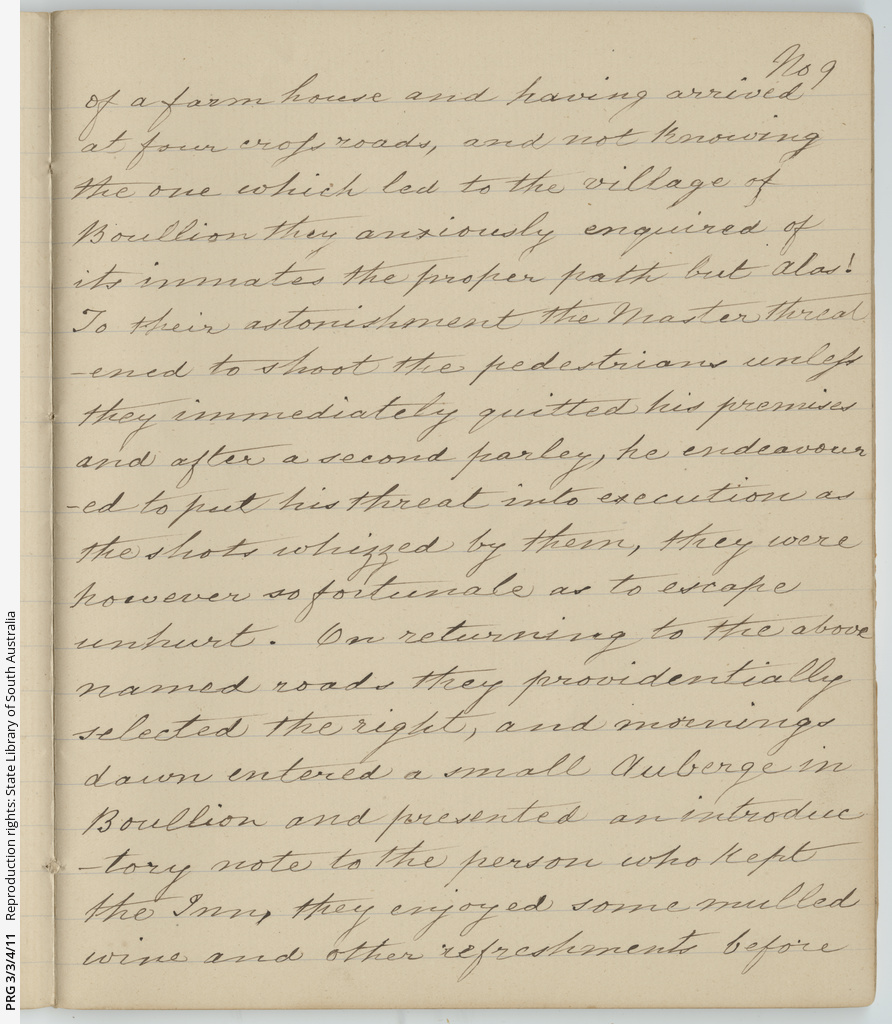 No 9
of a farm house and having arrived
at four cross roads, and not Knowing
the one which led to the village of
Boullion they anxiously enquired of
its inmates the proper path but Alas!
To their astonishment the Master threat
-ened to shoot the pedestrians unless
they immediately quitted his premises
and after a second parley, he endeavour
-ed to put his threat into execution as
the shots whizzed by them, they were
however so fortunate as to escape
unhurt. On returning to the above
named roads they providentially
selected the right, and mornings
dawn entered a small Auberge in
Boullion and presented an introduc
-tory note to the person who Kept
the Inn, they enjoyed some mulled
wine and other refreshments before
PRG 3/3/4/11 Reproduction rights: State Library of South Australia